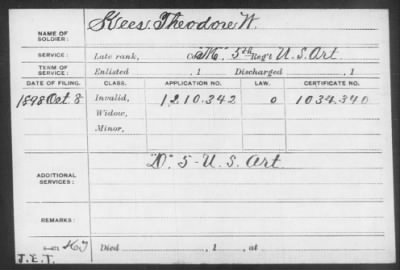 NAME OF SOLDIER: Kees, Theodore W.
SERVICE: Late rank, Co. "M", 5th Reg't U.S. Art.
TERM OF SERVICE: Enlisted , 1 Discharged , 1
DATE OF FILING. CLASS. APPLICATION NO. LAW. CERTIFICATE NO.
1898 Oct. 8 Invalid, 1210.342 0 1034.340
Widow,
Minor,
ADDITIONAL SERVICES: "D." 5 - U.S. Art.
REMARKS:
Ky Died , 1 , at
J.E.T.